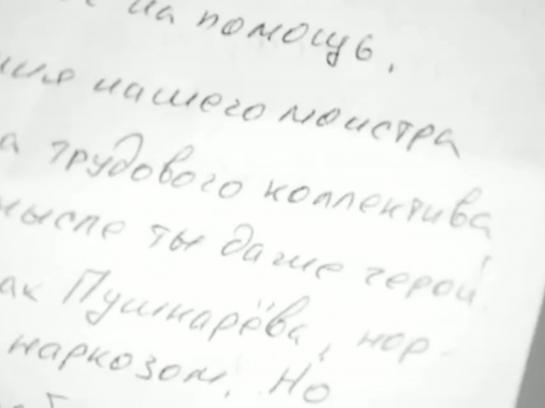 на помощь.
ния нашего монстра
а трудового коллектива,
мысле ты даже герой.
ак Пушкарёва, нор-
наркозом. Но